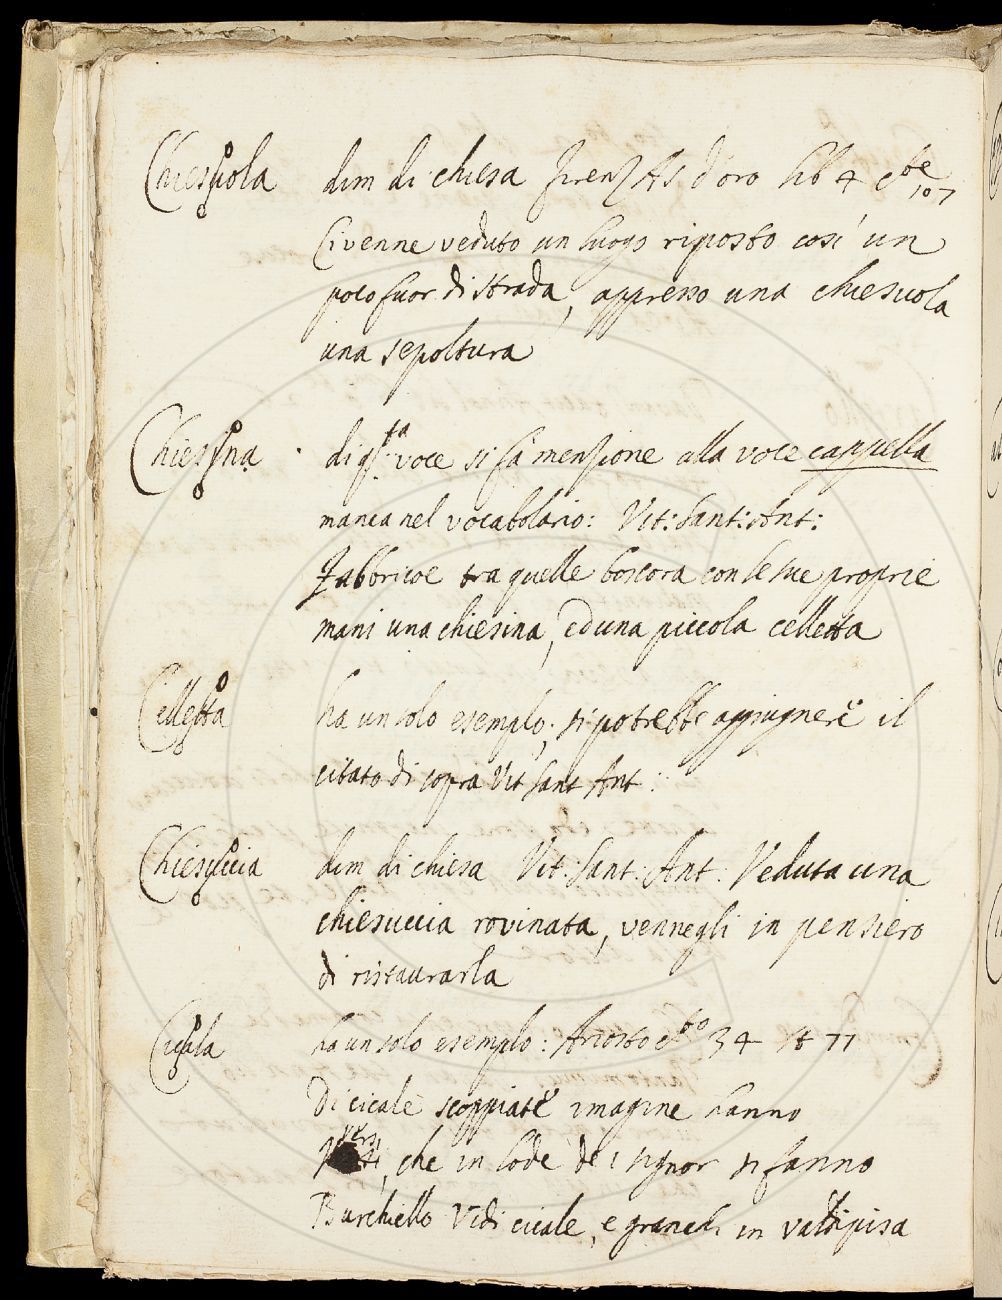 Chiesuola dim di chiesa Firenz As d'oro lib 4 c.te 107
Ci venne veduto un luogo riposto cosi un
poco fuor di strada, appresso una chiesuola
una sepoltura
Chiesina di q.ta voce si fa menzione alla voce cappella
manca nel vocabolario: Vit: Sant: Ant:
Fabbricoe tra quelle boscora con le sue proprie
mani una chiesina, ed una piccola celletta
Celletta ha un solo esemplo; si potrebbe aggiugnere il
citato di sopra Vit Sant Ant:
Chiesuccia dim di chiesa Vit: Sant: Ant: Veduta una
chiesuccia rovinata, vennegli in pensiero
di ristaurarla
Cicala ha un solo esemplo: Ariosto c.to 34 st 77
Di cicale scoppiate imagine hanno
versi, che in lode de i signor si fanno
Burchiello Vidi cicale, e granchi in Valdipisa